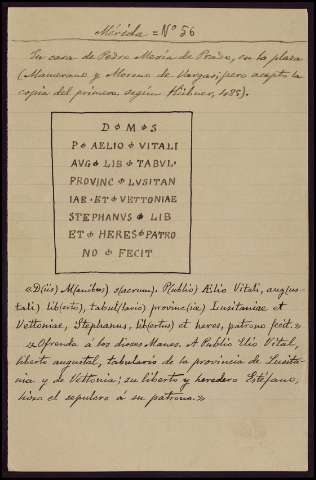 Mérida = Nº 56
En casa de Pedro María de Prado, en la plaza
(Mamerano y Moreno de Vargas; pero acepto la
copia del primero, según Hübner, 485).
D • M • S
P • AELIO • VITALI
AVG • LIB • TABVL•
PROVINC • LVSITAN
IAE • ET • VETTONIAE
STEPHANVS • LIB
ET • HERES • PATRO
NO • FECIT
«D(iis) M(anibus) s(acrum). P(ublio) Ælio Vitali, aug(us-
tali) lib(erto), tabul(tario) province(iæ) Lusitaniæ et
Vettoniæ, Stephanus, lib(ertus) et heres, patrono fecit.»
«Ofrenda á los dioses Manes. A Publio Elio Vital,
liberto augustal, tabulario de la provincia de Lusita-
nia y de Vettonia; su liberto y heredero Estéfano,
hizo el sepulcro á su patrono.»